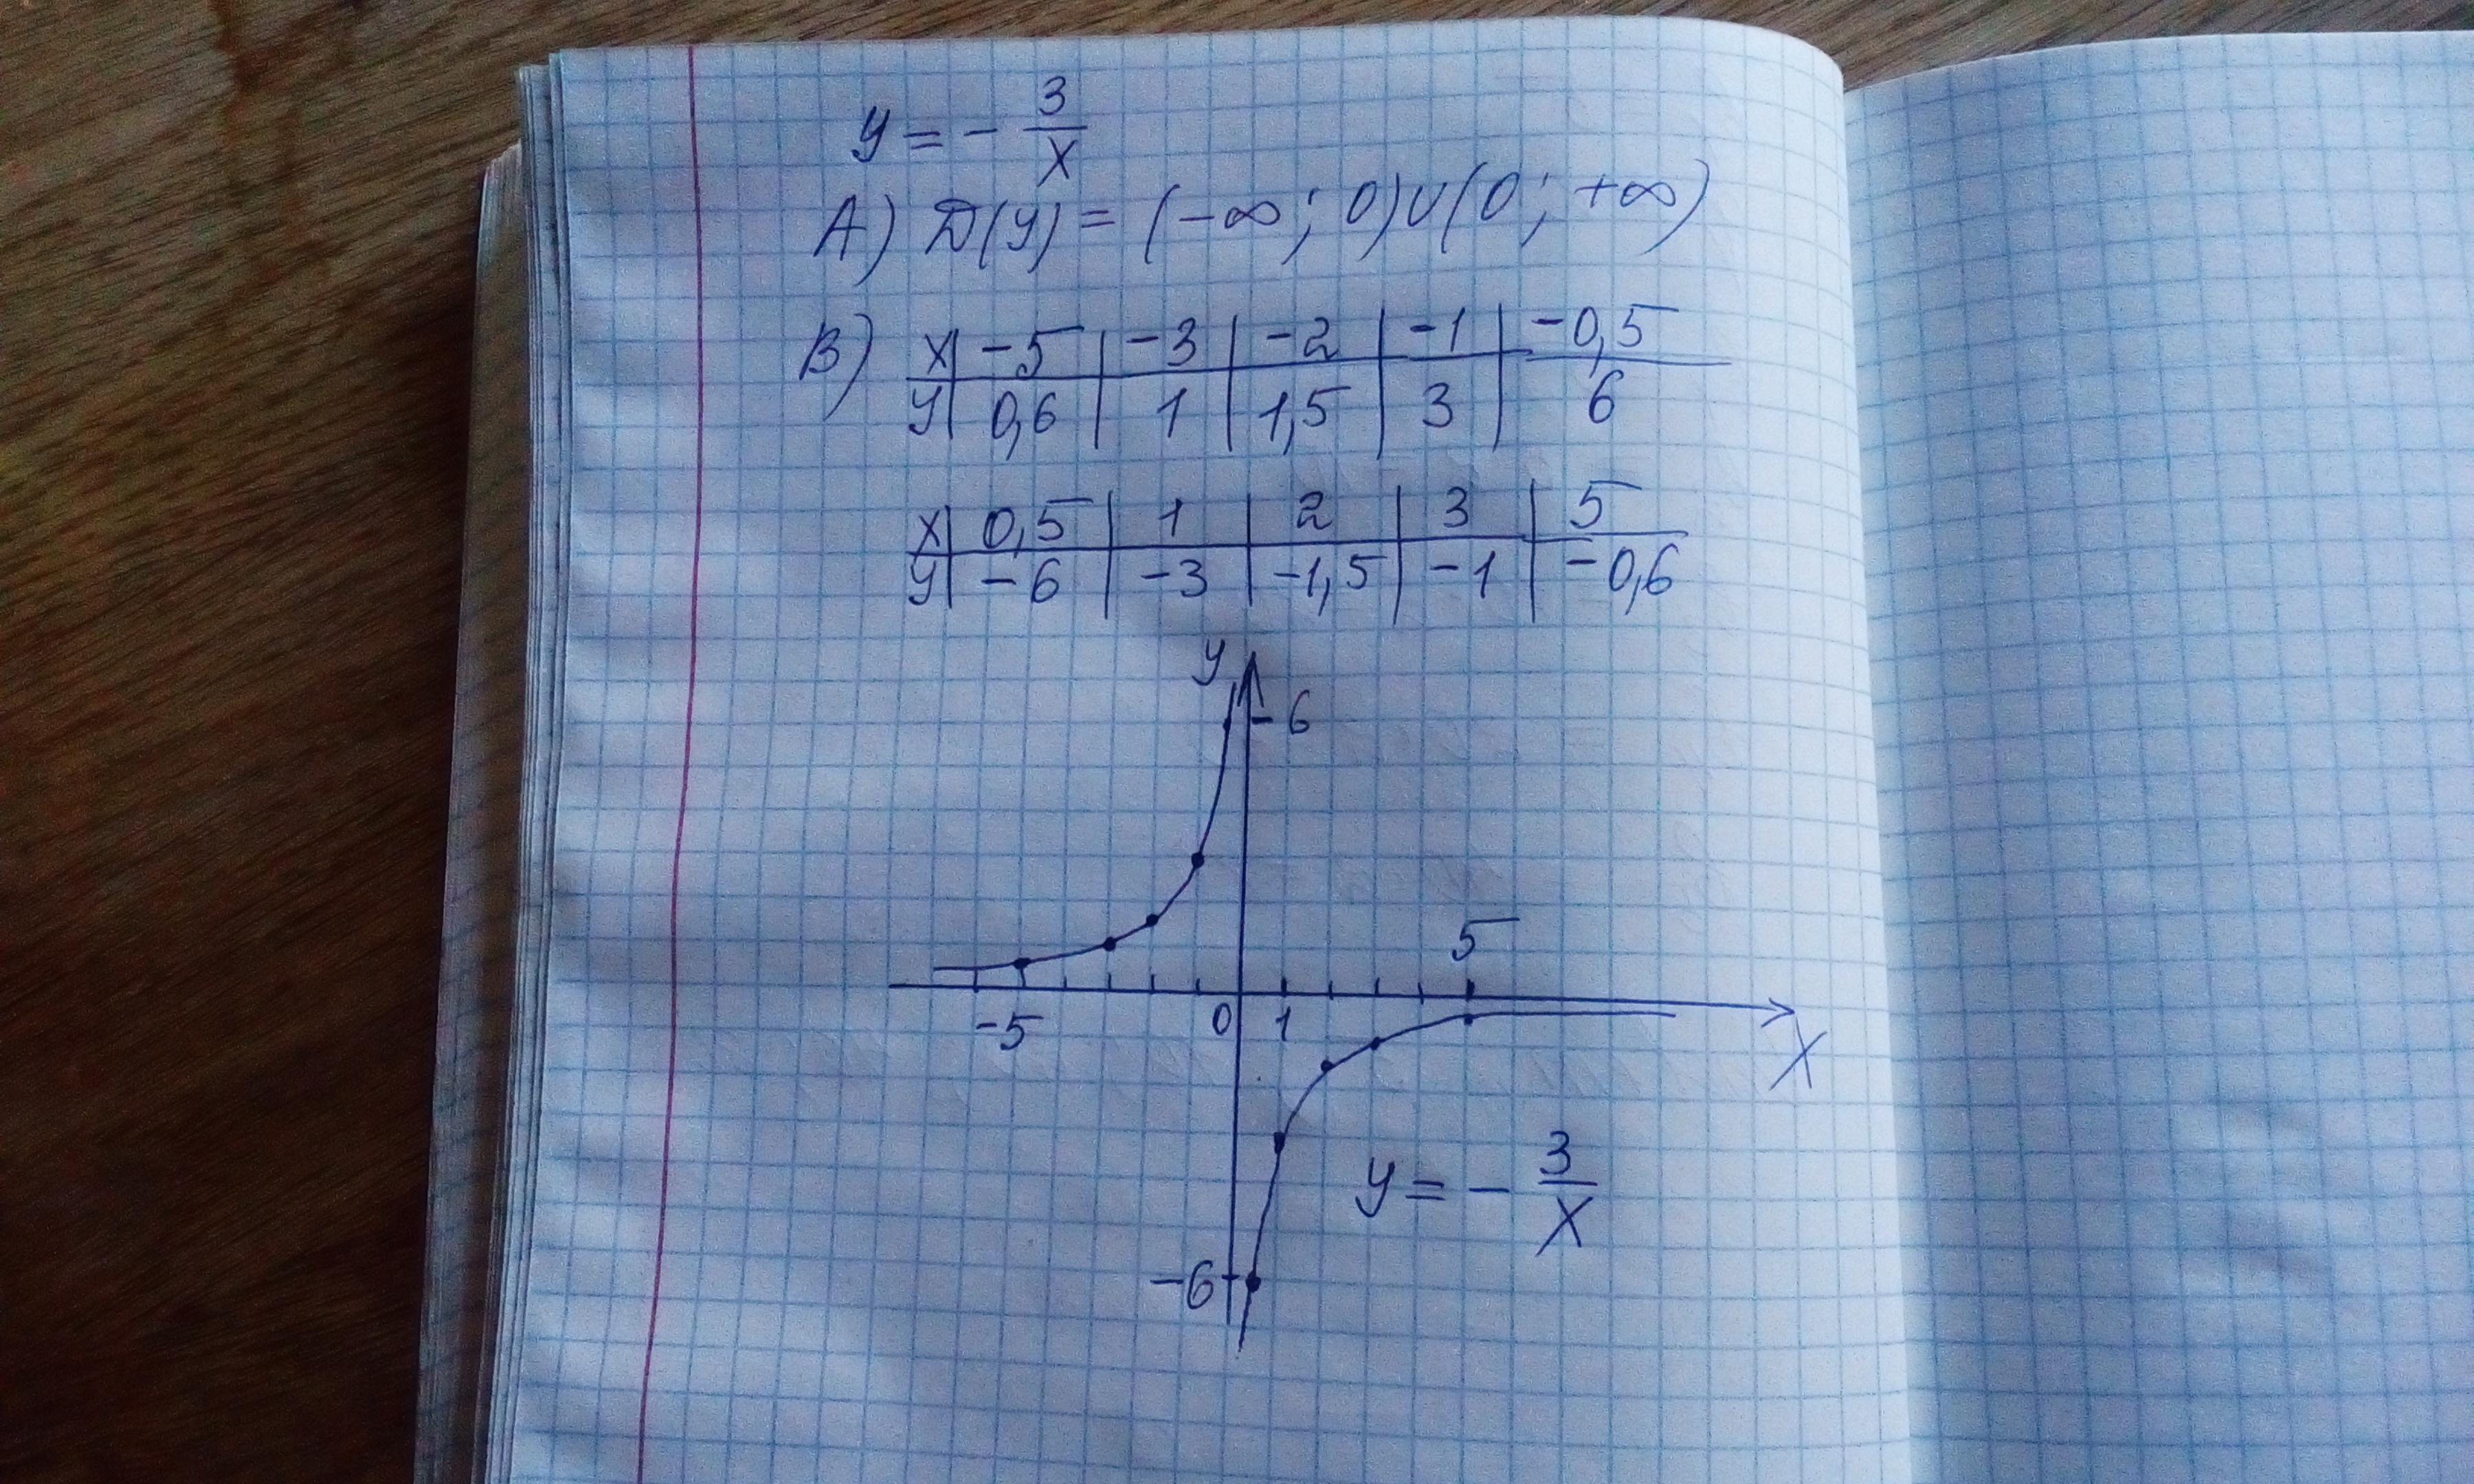 y = - 3/x
A) D(y) = (-∞; 0)∪(0; +∞)
B) x | -5 | -3 | -2 | -1 | -0,5
y | 0,6 | 1 | 1,5 | 3 | 6
x | 0,5 | 1 | 2 | 3 | 5
y | -6 | -3 | -1,5 | -1 | -0,6
y
6
5
-5 0 1
x
y = - 3/x
-6